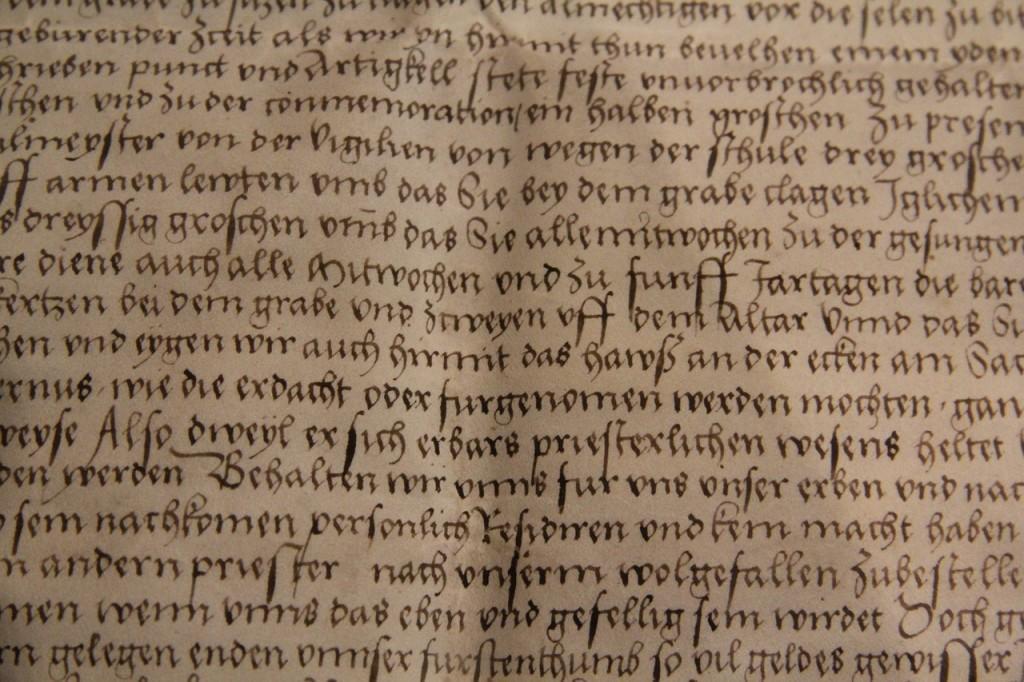 grabe zu zu den almechtigen vor die selen zu bit
geburender Zceit als wir yn hirmit thun beuelhen einem yden
hrieben punct vnd Artigkell stete feste vnuorbrochlich gehalten
schen vnd zu der commemoration ein halben groschen zu presen
lmeyster von der Vigilien von wegen der schule drey grosche
ff armen lewten vmb das Sie bey dem grabe clagen Iglichem
s dreyssig groschen vmb das Sie alle mitwochen zu der gesungen
re diene auch alle Mitwochen vnd zu funff Jartagen die bare
kertzen bei dem grabe vnd zcweyen vff dem Altar Vnnd das Si
hen vnd eygen wir auch hirmit das hawß an der ecken am Sac
ernus wie die erdacht oder furgenomen werden mochten gan
weyse Also dweyl er sich erbars priesterlichen wesens heltet
den werden Behalten wir vnns fur vns vnser erben vnd nac
sein nachkomen personlich Residiren vnd kein macht haben
n andern priester nach vnserm wolgefallen zubestelle
men wenn vnns das eben vnd gefellig sein wirdet Doch ge
rn gelegen enden vnnser furstenthumb so vil geldes gewisser